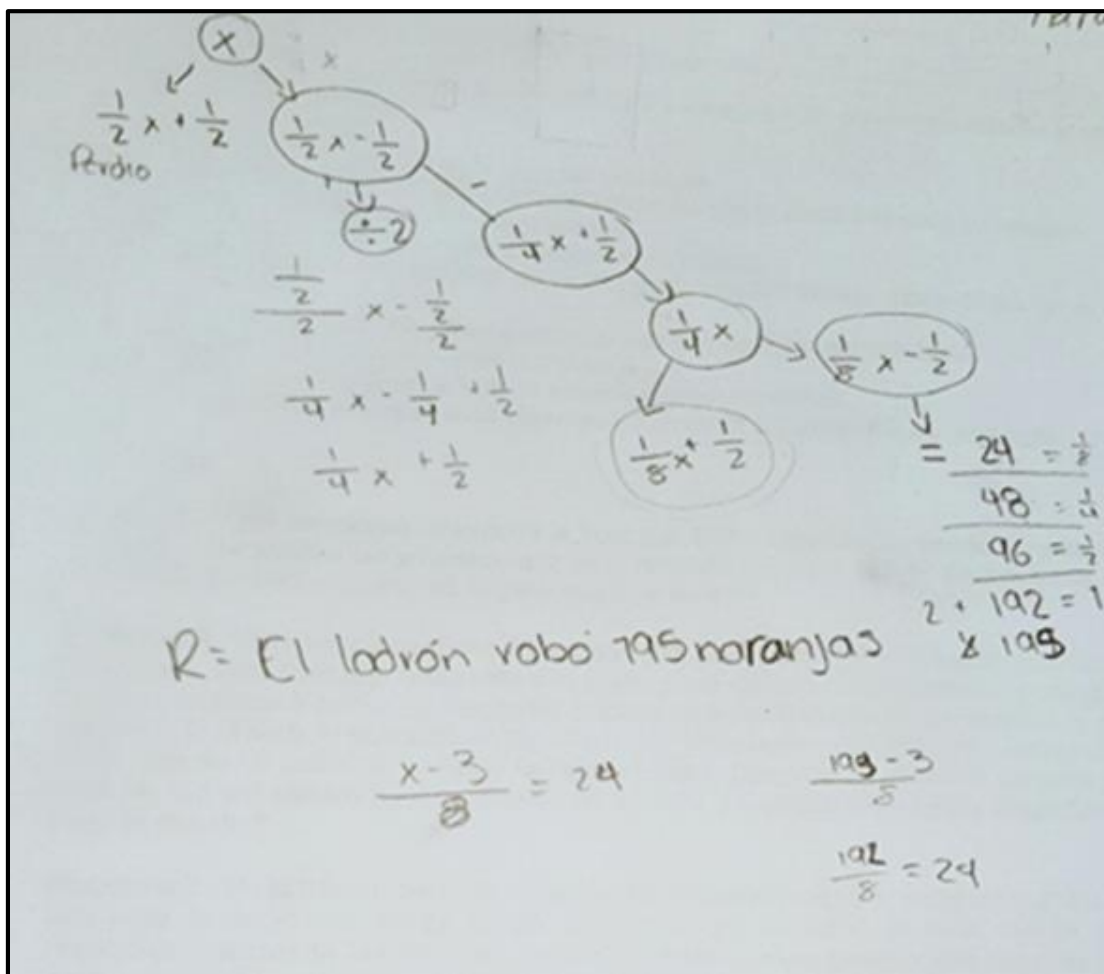 x
1/2 x + 1/2
Perdio
1/2 x - 1/2
÷ 2
1/4 x + 1/2
1/4 x
1/8 x - 1/2
1/8 x + 1/2
1/2/2 x - 1/2/2
1/4 x - 1/4 + 1/2
1/4 x + 1/2
= 24 = 1/8
48 = 1/4
96 = 1/2
2 + 192 = 1
195
R= El ladrón robó 195 naranjas
x - 3 / 8 = 24
195 - 3 / 8
192 / 8 = 24